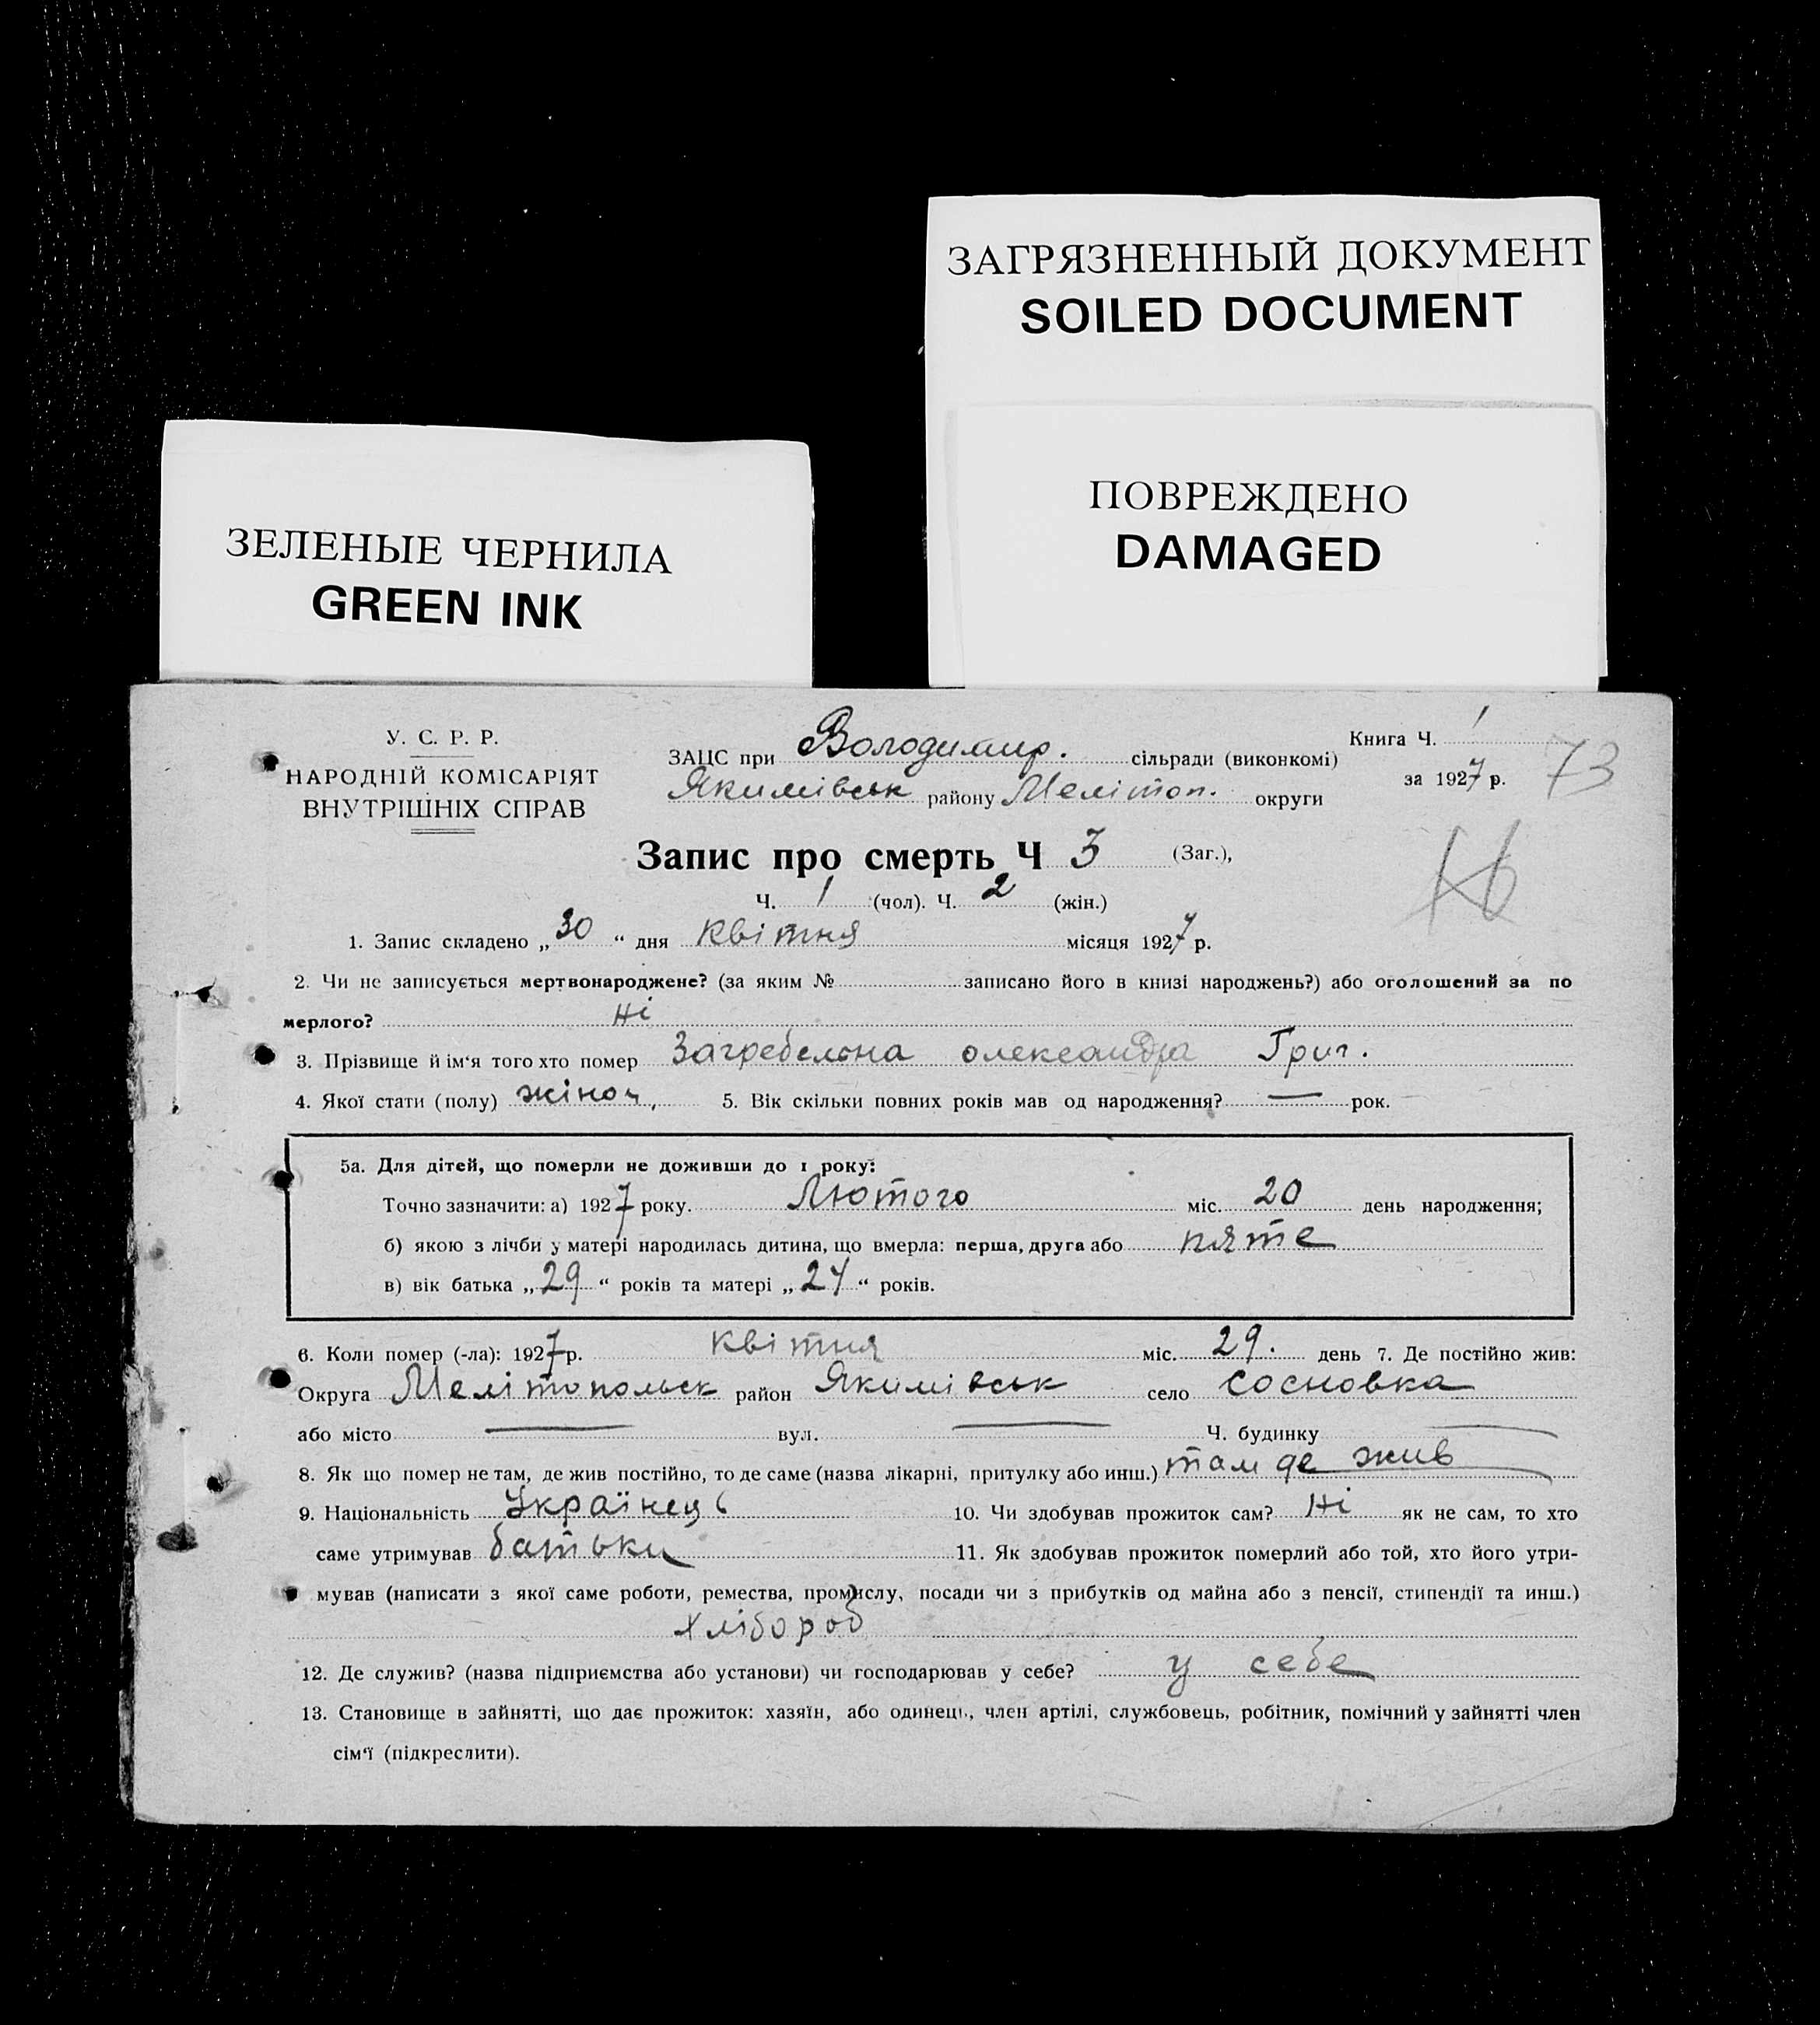 ЗАГРЯЗНЕННЫЙ ДОКУМЕНТ
SOILED DOCUMENT
ПОВРЕЖДЕНО
DAMAGED
ЗЕЛЕНЫЕ ЧЕРНИЛА
GREEN INK
У. С. Р. Р.
НАРОДНІЙ КОМІСАРІЯТ
ВНУТРІШНІХ СПРАВ
ЗАЦС при Володимир. сільради (виконкомі)
Якимівськ району Меліton. округи
Книга Ч. 1
за 1927 р.
73
Запис про смерть Ч 3 (Заг.),
Ч. 1 (чол). Ч. 2 (жін.)
1. Запис складено „30“ дня квітня місяця 1927 р.
2. Чи не записується мертвонароджене? (за яким № записано його в книзі народжень?) або оголошений за по
мерлого? Ні
3. Прізвище й ім'я того хто помер Загребельна олександра Григ.
4. Якої стати (полу) жіноч, 5. Вік скільки повних років мав од народження? — рок.
5а. Для дітей, що померли не доживши до 1 року:
Точно зазначити: а) 1927 року. Лютого міс. 20 день народження;
б) якою з лічби у матері народилась дитина, що вмерла: перша, друга або пяте
в) вік батька „29“ років та матері „24“ років.
6. Коли помер (-ла): 1927 р. квітня міс. 29. день 7. Де постійно жив:
Округа Мелітопольск район Якимівськ село Сосновка
або місто — вул. — Ч. будинку —
8. Як що помер не там, де жив постійно, то де саме (назва лікарні, притулку або инш.) там де жив
9. Національність Українець 10. Чи здобував прожиток сам? Ні як не сам, то хто
саме утримував батьки 11. Як здобував прожиток померлий або той, хто його утри-
мував (написати з якої саме роботи, ремества, промислу, посади чи з прибутків од майна або з пенсії, стипендії та инш.)
хлібороб
12. Де служив? (назва підприємства або установи) чи господарював у себе? у себе
13. Становище в зайнятті, що дає прожиток: хазяїн, або одинець, член артілі, службовець, робітник, помічний у зайнятті член
сім'ї (підкреслити).